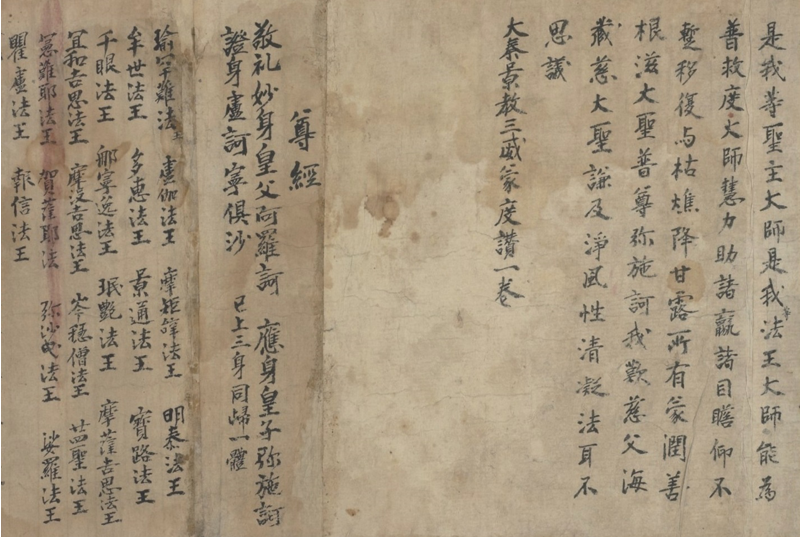 是我等聖主大師是我等法王大師能為
普救度大師慧力助諸羸諸目瞻仰不
蹔移復与枯燋降甘露所有蒙潤善
根滋大聖普尊弥施訶我歎慈父海
藏慈大聖謙及淨風性清凝法耳不
思議
大秦景教三威蒙度讚一卷
尊經
敬礼妙身皇父阿羅訶 應身皇子弥施訶
證身盧訶寧俱沙 已上三身同歸一體
瑜罕難法王 盧伽法王 摩矩辭法王 明泰法王
牟世法王 多惠法王 景通法王 寶路法王
千眼法王 那寧逸法王 珉艶法王 摩薩吉思法王
宜和吉思法王 摩没吉思法王 岑穩僧法王 廿四聖法王
憲難耶法王 賀薩耶法 弥沙曳法王 娑羅法王
瞿盧法王 報信法王